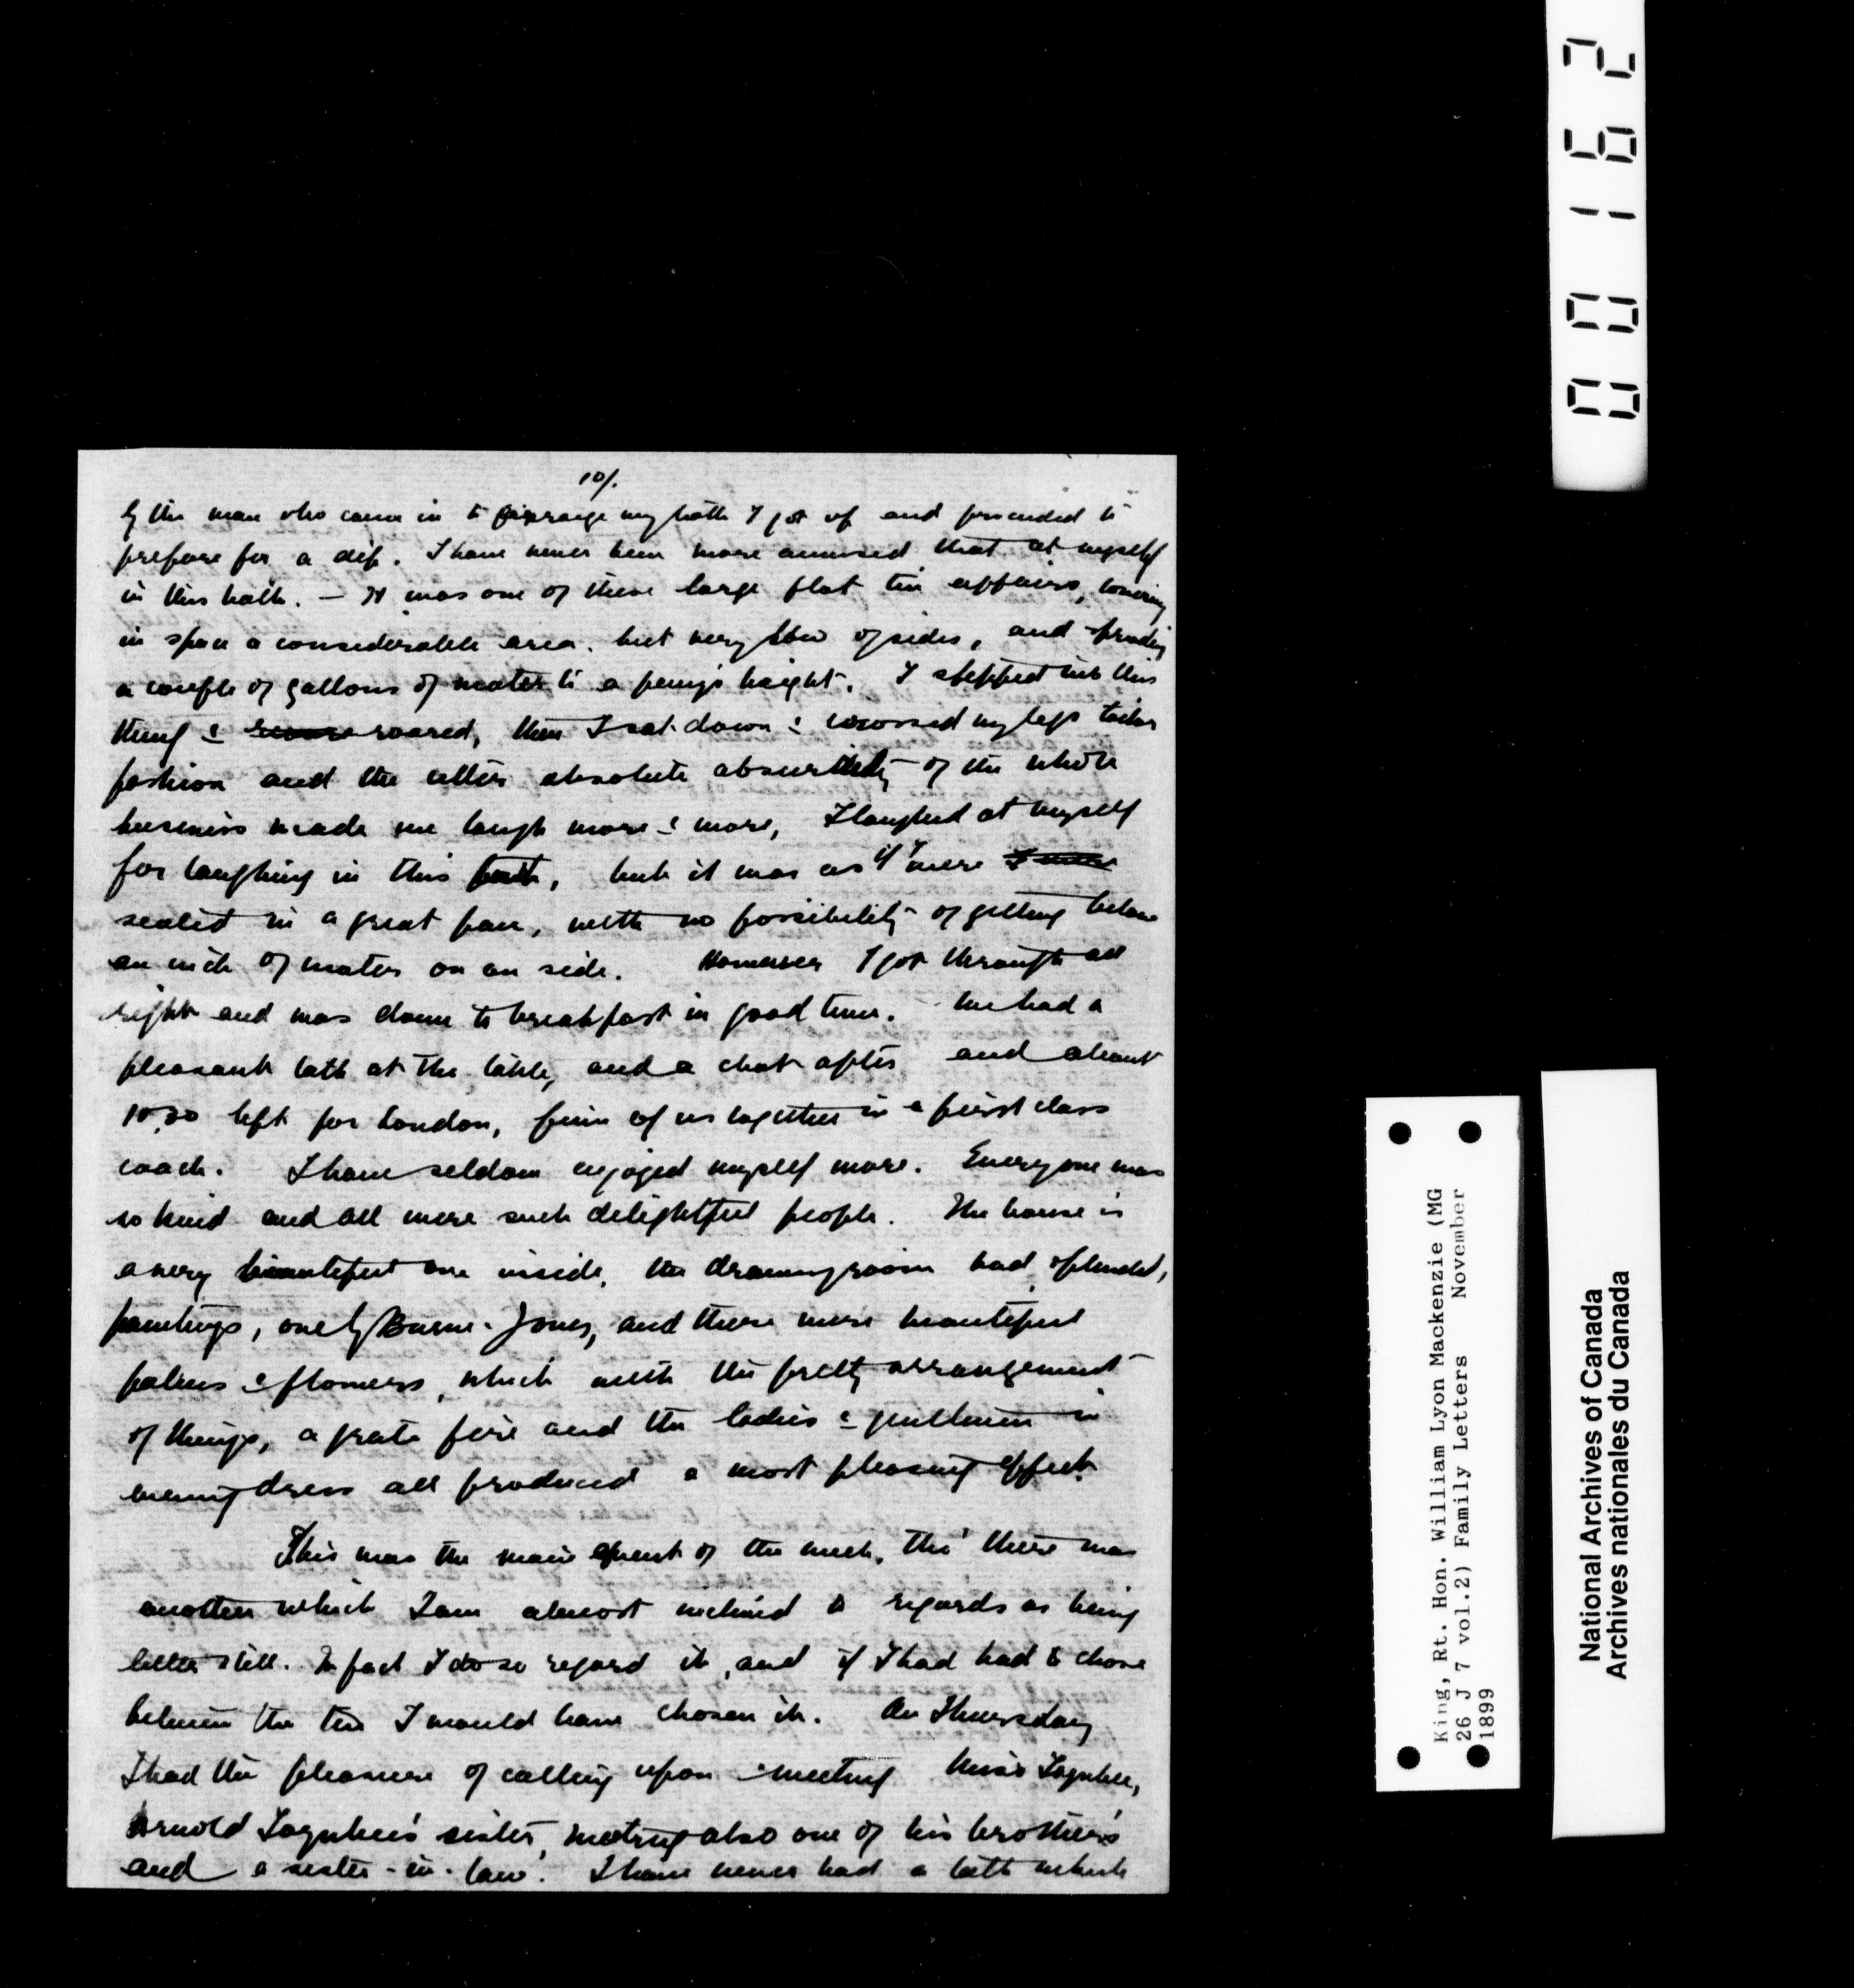 10/.
by the man who came in to arrange my bath I got up and proceeded to
prepare for a dip. I have never been more amused that at myself
in this bath. – It was one of these large flat tin affairs, covering
in space a considerable area. but very low of sides, and
a couple of gallons of water to a height. I stepped into this
thing & roared, then I sat down & crossed my legs tailor
fashion and the utter absolute absurdity of the whole
business made me laugh more & more, I laughed at myself
for laughing in this bath, but it was as if I were
seated in a great pan, with no possibility of getting below
an inch of water on an side. However I got through all
right and was down to breakfast in good time. We had a
pleasant talk at the table, and a chat after and about
10.30 left for London, of us together in a first class
coach. I have seldom enjoyed myself more. Everyone was
so kind and all were such delightful people. The house is
a very beautiful one inside, the drawing room had splendid,
paintings, one by Burne-Jones, and there were beautiful
palms & flowers, which with the pretty arrangement
of things, a grate fire and the ladies & gentlemen in
evening dress all produced a most pleasing effect.
This was the main event of the week, tho' there was
another which I am almost inclined to regards as being
better still. In fact I do so regard it, and if I had had to chose
between the two I would have chosen it. On Thursday
I had the pleasure of calling upon & meeting Miss Toynbee,
Arnold Toynbee's sister, meeting also one of his brother's
and a sister-in-law. I have never had a talk which
00162
King, Rt. Hon. William Lyon Mackenzie (MG
26 J 7 vol.2) Family Letters November
1899
National Archives of Canada
Archives nationales du Canada